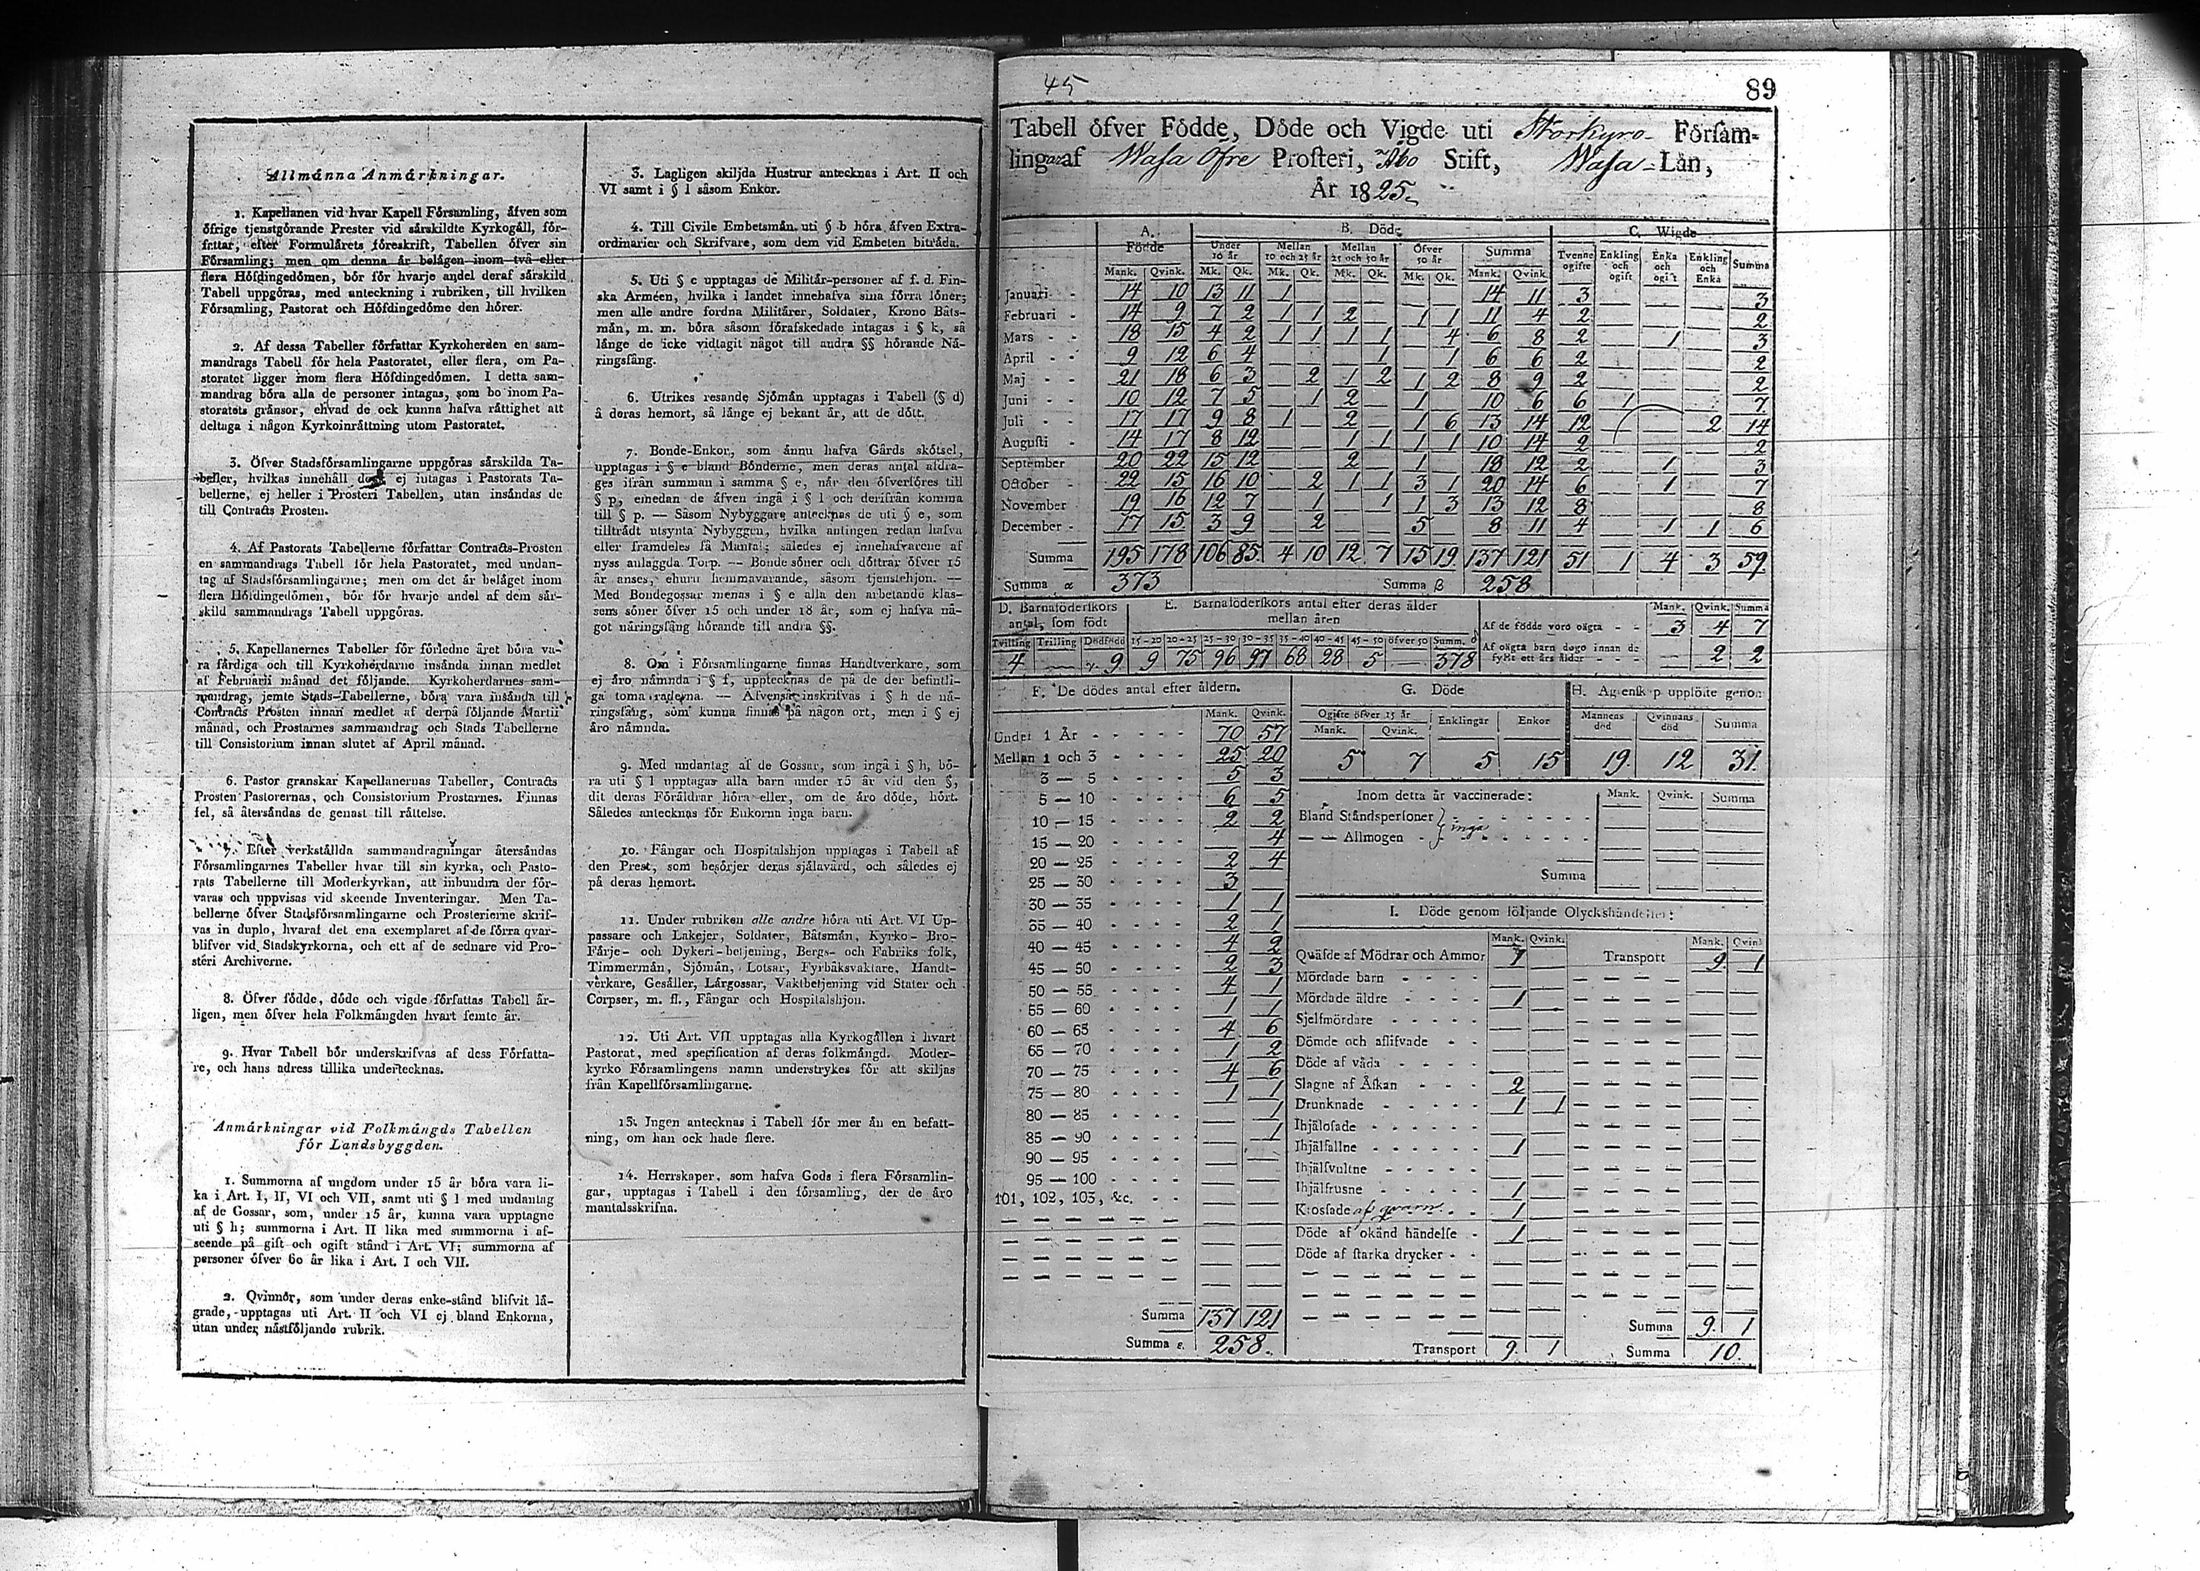 Allmånna Anmårkningar.
1. Kapellanen vid hvar Kapell Fórsamling, åfven som
ófrige tjenstgórande Prester vid sårskildte Kyrkogåll, fór-
fattar, efter Formulårets fóreskrift, Tabellen ófver sin
Fórsamling; men om denna år belågen inom två eller
flera Hófdingedómen, bór fór hvarje andel deraf sårskild
Tabell uppgóras, med anteckning i rubriken, till hvilken
Fórsamling, Pastorat och Hófdingedóme den hórer.
2. Af dessa Tabeller fórfattar Kyrkoherden en sam-
mandrags Tabell fór hela Pastoratet, eller flera, om Pa-
storatet ligger inom flera Hófdingedómen. I detta sam-
mandrag bóra alla de personer intagas, som bo inom Pa-
storatets grånsor, ehvad de ock kunna hafva råttighet att
deltaga i någon Kyrkoinråttning utom Pastoratet.
3. Öfver Stadsfórsamlingarne uppgóras sårskilda Ta-
beller, hvilkas innehåll dock ej intagas i Pastorats Ta-
bellerne, ej heller i Prosteri Tabellen, utan insåndas de
till Contracts Prosten.
4. Af Pastorats Tabellerne fórfattar Contracts-Prosten
en sammandrags Tabell fór hela Pastoratet, med undan-
tag af Stadsfórsamlingarne; men om det år belåget inom
flera Hófdingedómen, bór fór hvarje andel af dem sår-
skild sammandrags Tabell uppgóras.
5. Kapellanernes Tabeller fór fórledne året bóra va-
ra fårdiga och till Kyrkoherdarne insånda innan medlet
af Februarii månad det fóljande. Kyrkoherdarnes sam-
mandrag, jemte Stads-Tabellerne, bóra vara insånda till
Contracts Prosten innan medlet af derpå fóljande Martii
månad, och Prostarnes sammandrag och Stads Tabellerne
till Consistorium innan slutet af April månad.
6. Pastor granskar Kapellanernas Tabeller, Contracts
Prosten Pastorernas, och Consistorium Prostarnes. Finnas
fel, så återsåndas de genast till råttelse.
7. Efter verkstållda sammandragningar återsåndas
Fórsamlingarnes Tabeller hvar till sin kyrka, och Pasto-
rats Tabellerne till Moderkyrkan, att inbundna der fór-
varas och uppvisas vid skeende Inventeringar. Men Ta-
bellerne ófver Stadsfórsamlingarne och Prosterierne skrif-
vas in duplo, hvaraf det ena exemplaret af de fórra qvar-
blifver vid Stadskyrkorna, och ett af de sednare vid Pro-
steri Archiverne.
8. Öfver fódde, dóde och vigde fórfattas Tabell år-
ligen, men ófver hela Folkmångden hvart femte år.
9. Hvar Tabell bór underskrifvas af dess Fórfatta-
re, och hans adress tillika undertecknas.
Anmårkningar vid Folkmångds Tabellen
fór Landsbyggden.
1. Summorna af ungdom under 15 år bóra vara li-
ka i Art. I, II, VI och VII, samt uti § l med undantag
af de Gossar, som, under 15 år, kunna vara upptagne
uti § h; summorna i Art. II lika med summorna i af-
seende på gift och ogift stånd i Art. VI; summorna af
personer ófver 60 år lika i Art. I och VII.
2. Qvinnor, som under deras enke-stånd blifvit lå-
grade, upptagas uti Art. II och VI ej bland Enkorna,
utan under nåstfóljande rubrik.
3. Lagligen skiljda Hustrur antecknas i Art. II och
VI samt i § l såsom Enkor.
4. Till Civile Embetsmån uti § b hóra åfven Extra-
ordinarier och Skrifvare, som dem vid Embeten bitråda.
5. Uti § c upptagas de Militår-personer af f. d. Fin-
ska Arméen, hvilka i landet innehafva sina fórra lóner;
men alle andre fordna Militårer, Soldater, Krono Båts-
mån, m. m. bóra såsom fórafskedade intagas i § k, så
långe de icke vidtagit något till andra §§ hórande Nå-
ringsfång.
6. Utrikes resande Sjómån upptagas i Tabell (§ d)
å deras hemort, så långe ej bekant år, att de dótt.
7. Bonde-Enkor, som ånnu hafva Gårds skótsel,
upptagas i § e bland Bónderne, men deras antal afdra-
ges ifrån summan i samma § e, når den ófverfóres till
§ p, emedan de åfven ingå i § l och derifrån komma
till § p. — Såsom Nybyggare antecknas de uti § e, som
tilltrådt utsynta Nybyggen, hvilka antingen redan hafva
eller framdeles få Mantal; således ej innehafvarene af
nyss anlaggda Torp. — Bonde sóner och dóttrar ófver 15
år anses, ehuru hemmavarande, såsom tjenstehjon. —
Med Bondegossar menas i § e alla den arbetande klas-
sens sóner ófver 15 och under 18 år, som ej hafva nå-
got nåringsfång hórande till andra §§.
8. Om i Fórsamlingarne finnas Handtverkare, som
ej åro nåmnda i § f, upptecknas de på de der befintli-
ga toma raderna. — Åfvenså inskrifvas i § h de nå-
ringsfång, som kunna finnas på någon ort, men i § ej
åro nåmnda.
9. Med undantag af de Gossar, som ingå i § h, bó-
ra uti § l upptagas alla barn under 15 år vid den §,
dit deras Fóråldrar hóra eller, om de åro dóde, hórt.
Således antecknas fór Enkorna inga barn.
10. Fångar och Hospitalshjon upptagas i Tabell af
den Prest, som besórjer deras sjålavård, och således ej
på deras hemort.
11. Under rubriken alle andre hóra uti Art. VI Up-
passare och Lakejer, Soldater, Båtsmån, Kyrko- Bro-
Fårje- och Dykeri-betjening, Bergs- och Fabriks folk,
Timmermån, Sjómån, Lotsar, Fyrbåksvaktare, Handt-
verkare, Gesåller, Lårgossar, Vaktbetjening vid Stater och
Corpser, m. fl., Fångar och Hospitalshjon.
12. Uti Art. VII upptagas alla Kyrkogållen i hvart
Pastorat, med specification af deras folkmångd. Moder-
kyrko Fórsamlingens namn understrykes fór att skiljas
från Kapellfórsamlingarne.
13. Ingen antecknas i Tabell fór mer ån en befatt-
ning, om han ock hade flere.
14. Herrskaper, som hafva Gods i flera Fórsamlin-
gar, upptagas i Tabell i den fórsamling, der de åro
mantalsskrifna.
45
89
Tabell ófver Fódde, Dóde och Vigde uti Storkyro Fórsam-
lingar af Wasa Öfre Prosteri, Åbo Stift, Wasa Lån,
År 1825.
A. Födde B. Döde C. Wigde
Under 10 år Mellan 10 och 25 år Mellan 25 och 50 år Öfver 50 år Summa Tvenne ogifte Enkling och ogift Enka och ogift Enkling och Enka Summa
Mank. Qvink. Mk. Qk. Mk. Qk. Mk. Qk. Mk. Qk. Mank. Qvink.
Januari 14 10 13 11 1 — — — — — 14 11 3 — — — 3
Februari 14 9 7 2 1 1 2 — 1 1 11 4 2 — — — 2
Mars 18 15 4 2 1 1 1 1 — 4 6 8 2 — 1 — 3
April 9 12 6 4 — — — 1 — 1 6 6 2 — — — 2
Maj 21 18 6 3 — 2 1 2 1 2 8 9 2 — — — 2
Juni 10 12 7 5 — 1 2 — 1 — 10 6 6 1 — — 7
Juli 17 17 9 8 1 — 2 — 1 6 13 14 12 — — 2 14
Augusti 14 17 8 12 — — 1 1 1 1 10 14 2 — — — 2
September 20 22 15 12 — — 2 — 1 — 18 12 2 — 1 — 3
October 22 15 16 10 — 2 1 1 3 1 20 14 6 — 1 — 7
November 19 16 12 7 — 1 — 1 1 3 13 12 8 — — — 8
December 17 15 3 9 — 2 — — 5 — 8 11 4 — 1 1 6
Summa 195 178 106 85 4 10 12 7 15 19 137 121 51 1 4 3 59
Summa α 373 Summa β 258
D. Barnaföderskors antal, som födt
Tvilling Trilling Dödfödd
4 — 9
E. Barnaföderskors antal efter deras ålder mellan åren
15-20 20-25 25-30 30-35 35-40 40-45 45-50 öfver 50 Summ. δ
9 75 96 97 68 28 5 — 378
Mank. Qvink. Summa
Af de födde voro oägta 3 4 7
Af oägta barn dogo innan de fyllt ett års ålder — 2 2
F. De dödes antal efter åldern.
Mank. Qvink.
Under 1 År 70 57
Mellan 1 och 3 25 20
3 — 5 5 3
5 — 10 6 5
10 — 15 2 2
15 — 20 4
20 — 25 2 4
25 — 30 3 —
30 — 35 1 1
35 — 40 2 1
40 — 45 4 2
45 — 50 2 3
50 — 55 4 1
55 — 60 1 1
60 — 65 4 6
65 — 70 1 2
70 — 75 4 6
75 — 80 1 1
80 — 85 1
85 — 90 1
90 — 95 — —
95 — 100 — —
101, 102, 103, &c.
Summa 137 121
Summa ε. 258.
G. Döde
Ogifte öfver 15 år Enklingar Enkor
Mank. Qvink.
5 7 5 15
H. Agtensk p upplöste genom
Mannens död Qvinnans död Summa
19 12 31
Inom detta år vaccinerade: Mank. Qvink. Summa
Bland Ståndspersoner
— — Allmogen } inga
Summa
I. Döde genom följande Olyckshändelser:
Mank. Qvink. Mank. Qvink
Quäfde af Mödrar och Ammor 1 — Transport 9 1
Mördade barn
Mördade äldre 1
Sjelfmördare
Dömde och aflifvade
Döde af våda
Slagne af Åskan 2
Drunknade 1 1
Ihjälosade
Ihjälfallne 1
Ihjälsvultne
Ihjälfrusne 1
Krossade af qvarn 1
Döde af okänd händelse 1
Döde af starka drycker
Summa 9 1
Transport 9 1 Summa 10